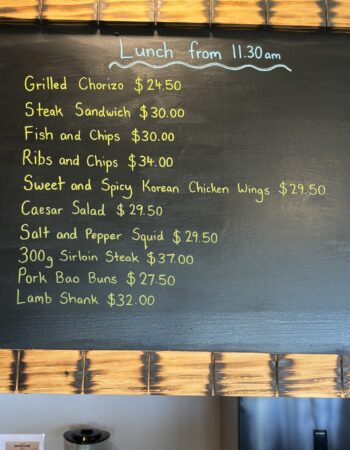 Lunch from 11.30am
Grilled Chorizo $24.50
Steak Sandwich $30.00
Fish and Chips $30.00
Ribs and Chips $34.00
Sweet and Spicy Korean Chicken Wings $29.50
Caesar Salad $29.50
Salt and Pepper Squid $29.50
300g Sirloin Steak $37.00
Pork Bao Buns $27.50
Lamb Shank $32.00